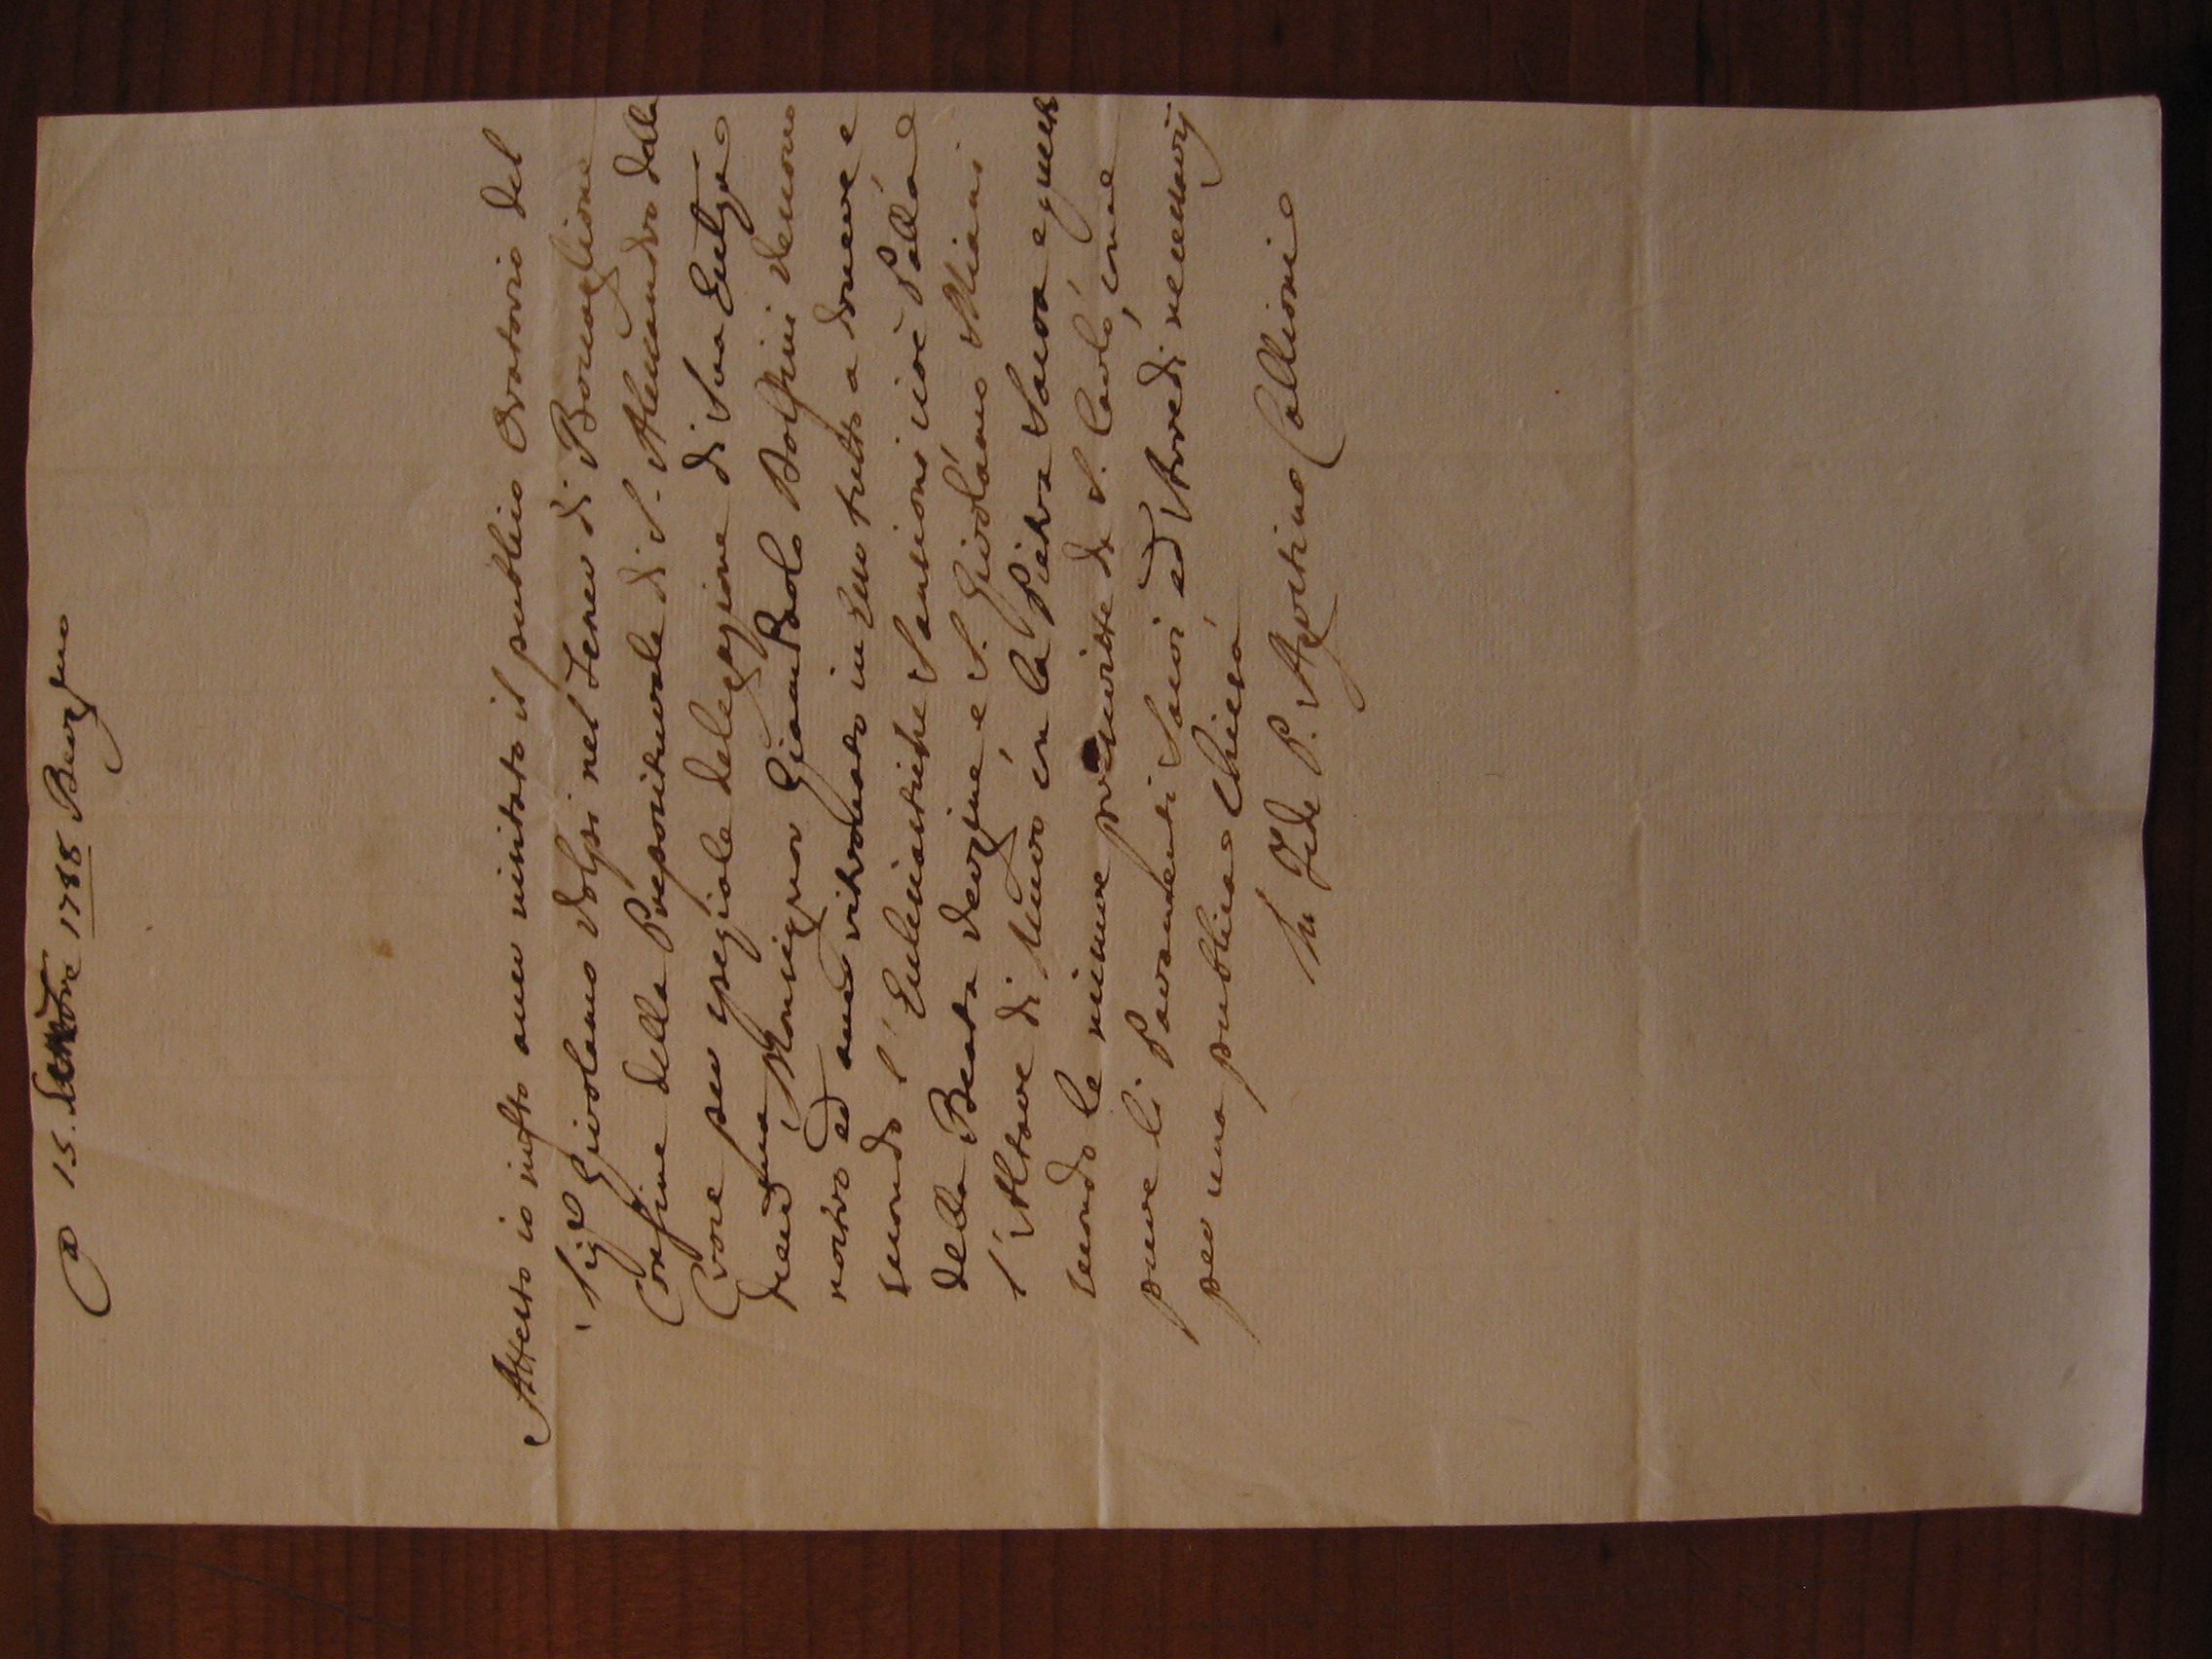 A 15. 1788 Bergamo
Attesto io infto aver visitato il publico Oratorio del
Sigr Girolamo Volpi nel Teneo di Bonaglione
Confine della Prepositurale di S. Alessandro dalla
Croce per speziale delegazione di Sua Eccelza
Revdma Monsignor Giam Paolo Dolfini Vescovo
nostro ed aver ritrovato in Esso tutto a dovere e
secondo l'Ecclesiastiche Sanzioni cioè Palla
della Beata Vergine e S. Girolamo Miani
l'Altare di Muro con la Pietra Sacra e questa
secondo le misure prescritte da S. Carlo, come
pure li Paramenti Sacri ed Arredi necessarij
per una publica Chiesa
In Fede P. Agostino Collioni